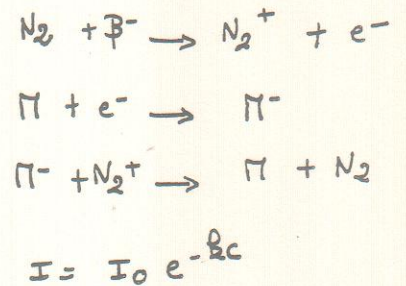 N₂ + β⁻ ⟶ N₂⁺ + e⁻
M + e⁻ ⟶ M⁻
M⁻ + N₂⁺ ⟶ M + N₂
I = I₀ e^{-kc}